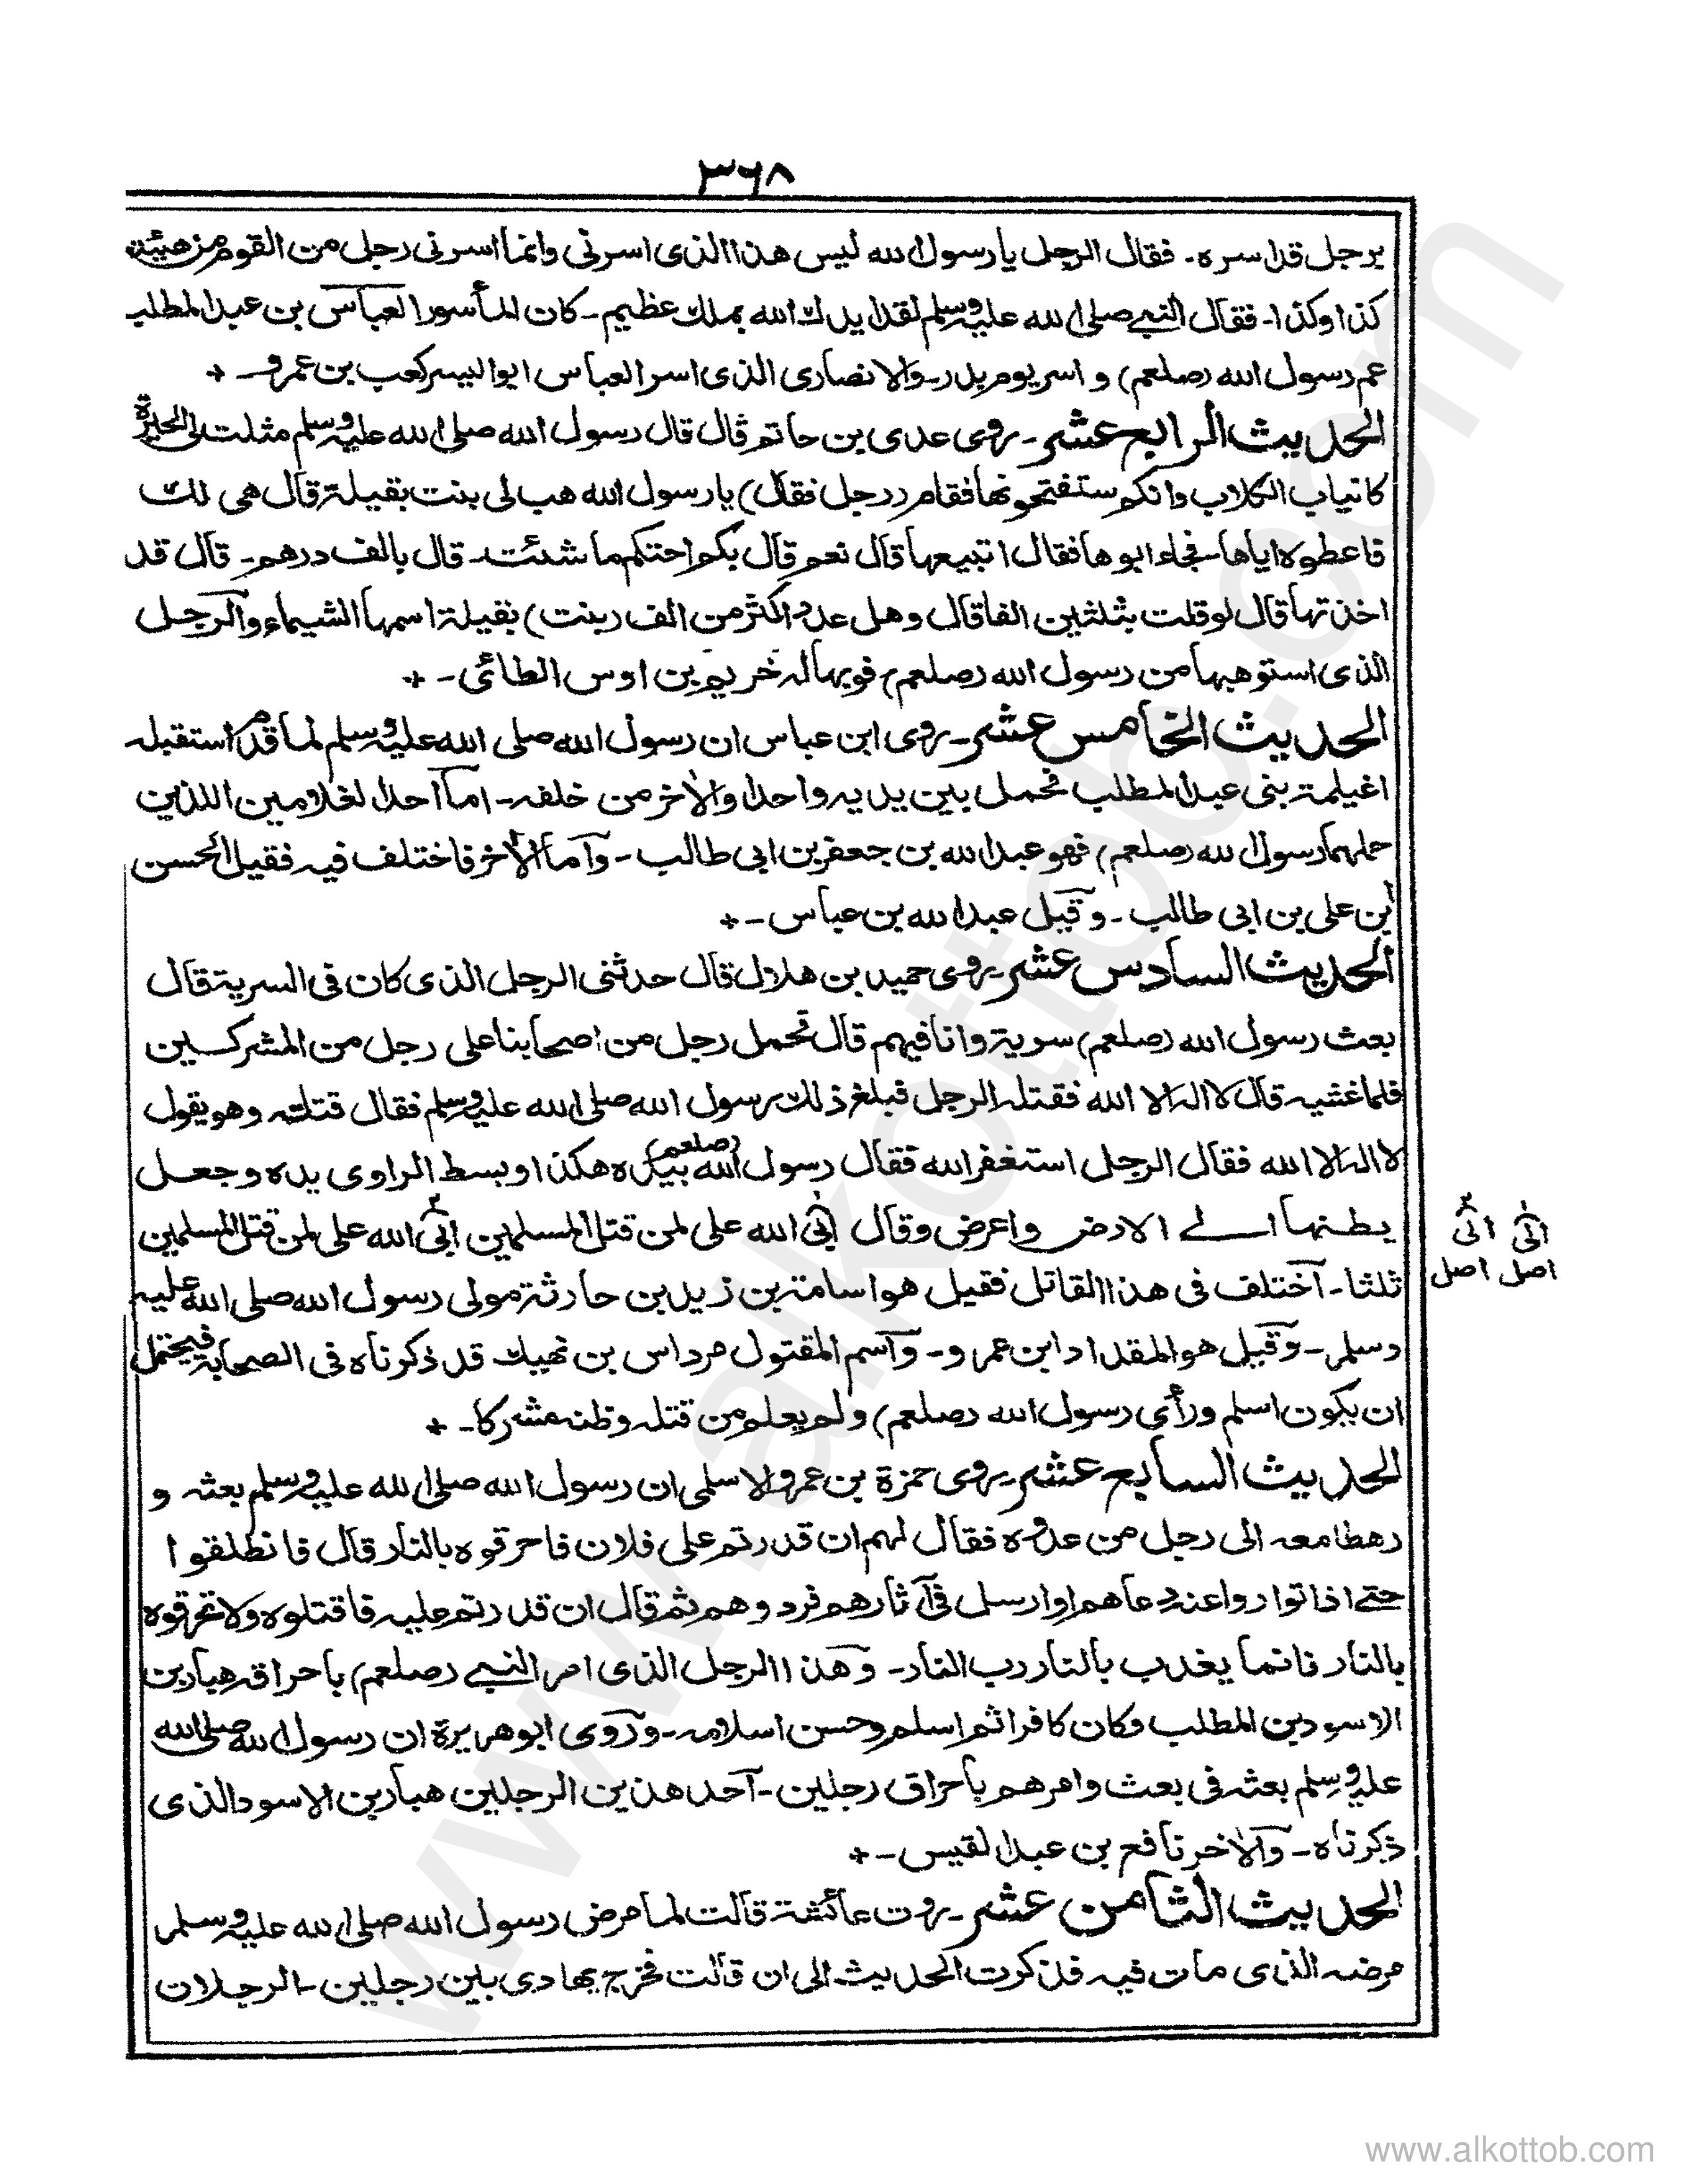 ٣٦٨
برجل قد اسره ـ فقال الرجل يا رسول الله ليس هذا الذى اسرنى وانما اسرنى رجل من القوم من هيئته
كذا وكذا ـ فقال النبى صلى الله عليه وسلم لقد ايدك الله بملك عظيم ـ كان المأسور العباس بن عبد المطلب
عم رسول الله (صلعم) و اسر يوم بدر ـ والانصارى الذى اسر العباس ابو اليسر كعب بن عمرو ـ +
الحديث الرابع عشر ـ روى عدى بن حاتم قال قال رسول الله صلى الله عليه وسلم مثلت لى الحيرة
كانياب الكلاب وانكم ستفتحونها فقام (رجل فقال) يا رسول الله هب لى بنت بقيلة قال هى لك
فاعطوه اياها ـ فجاء ابوها فقال اتبيعها قال نعم قال بكم احتكم ما شئت ـ قال بالف درهم ـ قال قد
اخذتها قال لو قلت بثلثين الفا قال وهل عدد اكثر من الف (بنت) بقيلة اسمها الشيماء والرجل
الذى استوهبها من رسول الله (صلعم) فوبها له خريم بن اوس الطائى ـ +
الحديث الخامس عشر ـ روى ابن عباس ان رسول الله صلى الله عليه وسلم لما قدم استقبله
اغيلمة بنى عبد المطلب فحمل بين يديه واحدا والاخر من خلفه ـ اما احد الغلامين اللذين
حملهما رسول الله (صلعم) فهو عبد الله بن جعفر بن ابى طالب ـ واما الاخر فاختلف فيه فقيل الحسن
ابن على بن ابى طالب ـ وقيل عبد الله بن عباس ـ +
الحديث السادس عشر ـ روى حميد بن هلال قال حدثنى الرجل الذى كان فى السرية قال
بعث رسول الله (صلعم) سرية وانا فيهم قال تحمل رجل من اصحابنا على رجل من المشركين
فلما غشيه قال لا اله الا الله فقتله الرجل فبلغ ذلك رسول الله صلى الله عليه وسلم فقال قتلته وهو يقول
لا اله الا الله فقال الرجل استغفر الله فقال رسول الله (صلعم) بيده هكذا وبسط الراوى يده وجعل
بطنها الى الارض واعرض وقال ابى الله على لمن قتل المسلمين ابى الله على لمن قتل المسلمين
الى اصل انى اصل
ثلثا ـ اختلف فى هذا القاتل فقيل هو اسامة بن زيد بن حارثة مولى رسول الله صلى الله عليه
وسلم ـ وقيل هو المقداد ابن عمرو ـ واسم المقتول مرداس بن نهيك قد ذكرناه فى الصحابة فيحتمل
ان يكون اسلم ورأى رسول الله (صلعم) ولم يعلم من قتله وظنه مشركا ـ +
الحديث السابع عشر ـ روى حمزة بن عمرو الاسلمى ان رسول الله صلى الله عليه وسلم بعثه و
رهطا معه الى رجل من عدوه فقال لهم ان قدرتم على فلان فاحرقوه بالنار قال فانطلقوا
حتى اذا تواروا عنه دعاهم او ارسل فى آثارهم فردوهم ثم قال ان قدرتم عليه فاقتلوه ولا تحرقوه
بالنار فانما يعذب بالنار رب النار ـ وهذا الرجل الذى امر النبى (صلعم) باحراقه هبار بن
الاسود بن المطلب وكان كافرا ثم اسلم وحسن اسلامه ـ وروى ابو هريرة ان رسول الله صلى الله
عليه وسلم بعثه فى بعث وامرهم باحراق رجلين ـ احد هذين الرجلين هبار بن الاسود الذى
ذكرناه ـ والاخر نافع بن عبد القيس ـ +
الحديث الثامن عشر ـ روت عائشة قالت لما مرض رسول الله صلى الله عليه وسلم
مرضه الذى مات فيه فذكرت الحديث الى ان قالت فخرج يهادى بين رجلين ـ الرجلان
www.alkottob.com
www.alkottob.com